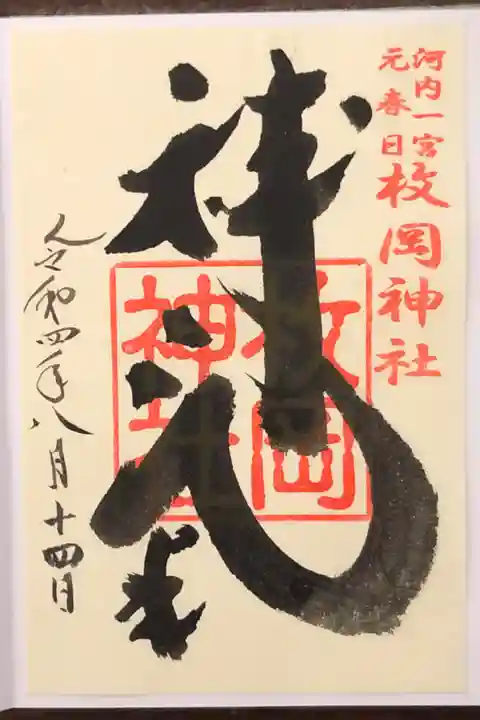 河内一宮
元春日
枚岡神社
神氣
枚岡
神社
令和四年八月十四日